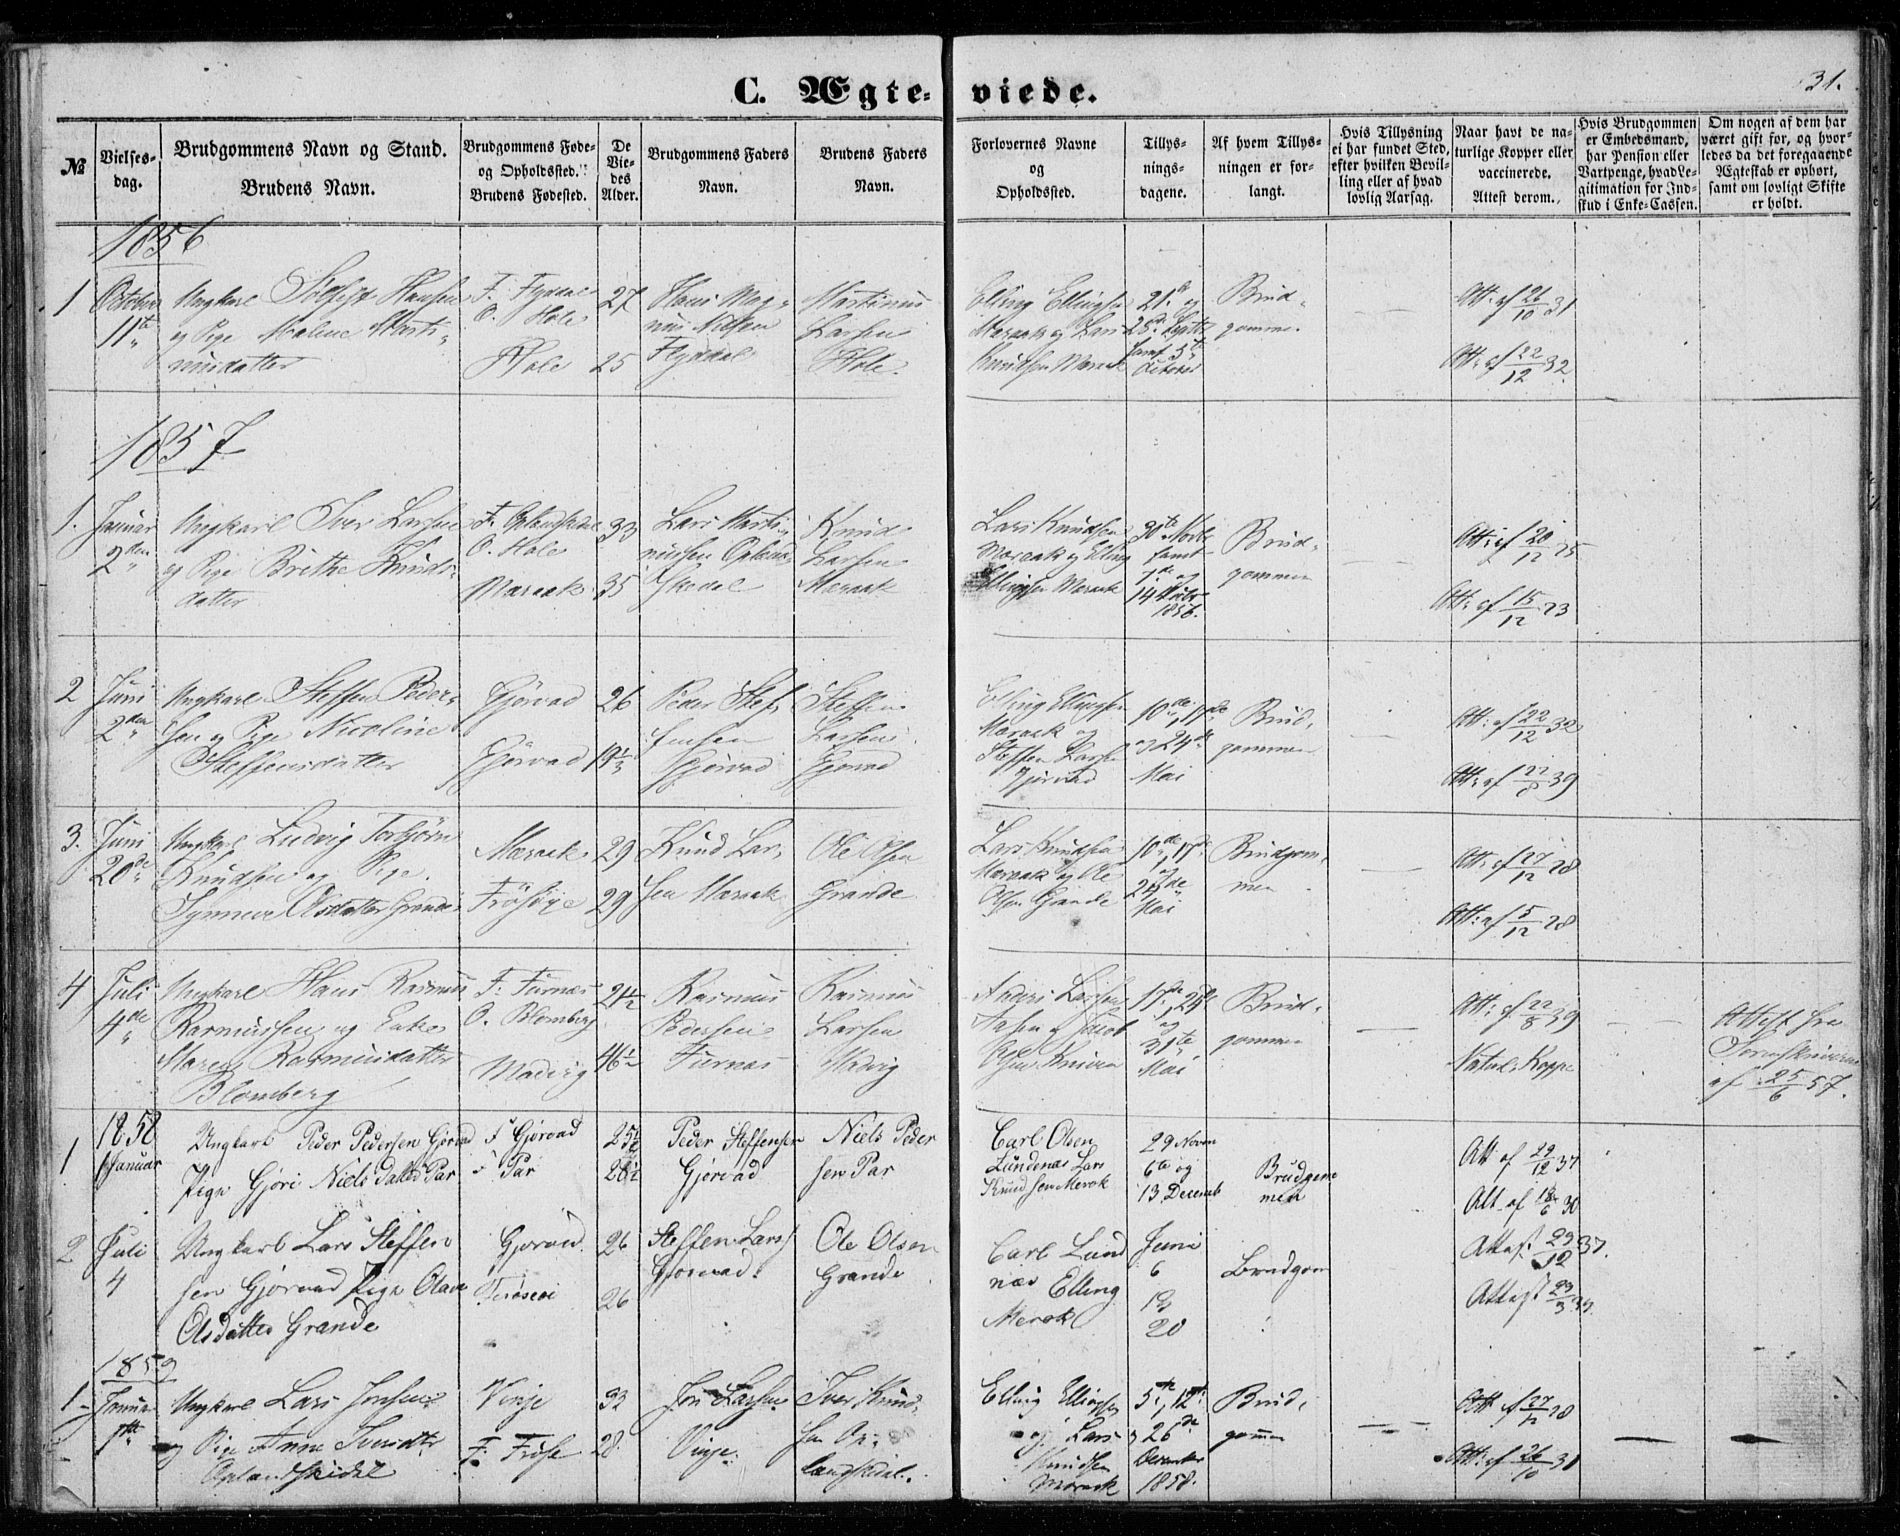 31.
C. Ægte-viede.
№
Vielses-
dag.
Brudgommens Navn og Stand.
Brudens Navn.
Brudgommens Føde-
og Opholdssted.
Brudens Fødested.
De
Vie-
des
Alder.
Brudgommens Faders
Navn.
Brudens Faders
Navn.
Forlovernes Navne
og
Opholdssted.
Tillys-
nings-
dagene.
Af hvem Tillys-
ningen er for-
langt.
Hvis Tillysning
ei har fundet Sted,
efter hvilken Bevil-
ling eller af hvad
lovlig Aarsag.
Naar havt de na-
turlige Kopper eller
vaccinerede.
Attest derom.
Hvis Brudgommen
er Embedsmand,
har Pension eller
Vartpenge, hvad Le-
gitimation for Ind-
skud i Enke-Cassen.
Om nogen af dem har
været gift før, og hvor-
ledes da det foregaaende
Ægteskab er ophørt,
samt om lovligt Skifte
er holdt.
1856
1
October
11te
Ungkarl Hansen
og Pige Malene Marti-
nusdatter
F. Flydal
O. Hole
Hole
27
25
Hans Mag-
nus Nilsen
Flydal
Martinus
Larsen
Hole.
Elling Ellingsen
Maraak og Lars
Knudsen Maraak
21de og
28de Septbr
samt 5te
October
Brud-
gommen
Att: af 26/10 31
Att: af 22/12 32
1857
1.
Januar
2den
Ungkarl Iver Larsen
og Pige Brithe Knuds-
datter
F. Oplandskedal
O. Hole
Maraak
33
35
Lars Marti-
nussen Oplands-
skedal
Knud
Larsen
Maraak
Lars Knudsen
Maraak og Elling
Ellingsen Maraak
30te Novbr
samt
7de og
14de Decbr
1856.
Brud-
gommen
Att: af 20/12 25
Att: af 15/12 23
2
Juni
2den
Ungkarl Steffen Peder-
sen og Pige Nicoline
Steffensdatter
Gjørvad
Gjørvad
26
Peder Stef-
fensen
Gjørvad
Steffen
Larsen
Gjørvad
Elling Ellingsen
Maraak og
Steffen Larsen
Gjørvad
10de, 17de
og 24de
Mai
Brud-
gommen
Att: af 22/12 32
Att: af 22/8 39
3.
Juni
20de
Ungkarl Ludvig Torbjørn
Knudsen og Pige
Synneve Olsdatter Grande
Maraak
Frøsvge
29
29
Knud Lar-
sen Maraak
Ole Olsen
Grande
Lars Knudsen
Maraak og Ole
Olsen Grande
10de, 17de
og
24de
Mai
Brudgom-
men
Att: af 27/12 28
Att: af 5/12 28
4
Juli
4de
Ungkarl Hans Rasmus
Rasmussen og Enke
Maren Rasmusdatter
Blomberg
F: Furnæs
O. Blomberg
Madvig
21½
46½
Rasmus
Pedersen
Furnæs
Rasmus
Larsen
Madvig
Anders Larsen
Aasen og
17de, 24de
og
31te
Mai
Brud-
gommen
Att: af 22/8 39
Naturl. Koppe
Attest fra
Sorenskriveren
af 25/6 57.
1858
1
Januar
Ungkarl Peder Pedersen Gjørvad
Pige Gjøri Nielsdatter Par
F Gjørvad
F Par
25½
28½
Peder Steffensen
Gjørvad
Niels Peder
sen Par
Carl Olsen
Lundenæs Lars
Knudsen Merok
29 Novem
6te og
13 Decemb
Brudgom
men
Att af 29/12 37
Att af 18/6 30
2
Juli
4
Ungkarl Lars Steffen
sen Gjørvad Pige Olave
Olsdatter Grande
Gjørvad
26
26
Steffen Lars
Gjørvad.
Ole Olsen
Grande
Carl Lund
næs Elling
Merok
Juni
6
13
20
Brudgom
Attest 23/12 37.
Attest 23/3 33
1859
1
Januar
1te
Ungkarl Lars Jonsen
og Pige Anne Iversdtr
Oplandskedal
Vinje
F. Frøse
32
28
Jon Larsen
Vinje
Iver Knud-
sen Op-
landskedal.
Elling Ellingsen
og Lars
Knudsen
Maraak
5te, 12te
og 26de
December
1858.
Brud-
gommen
Att: af 27/12 28
Att: af 26/10 31